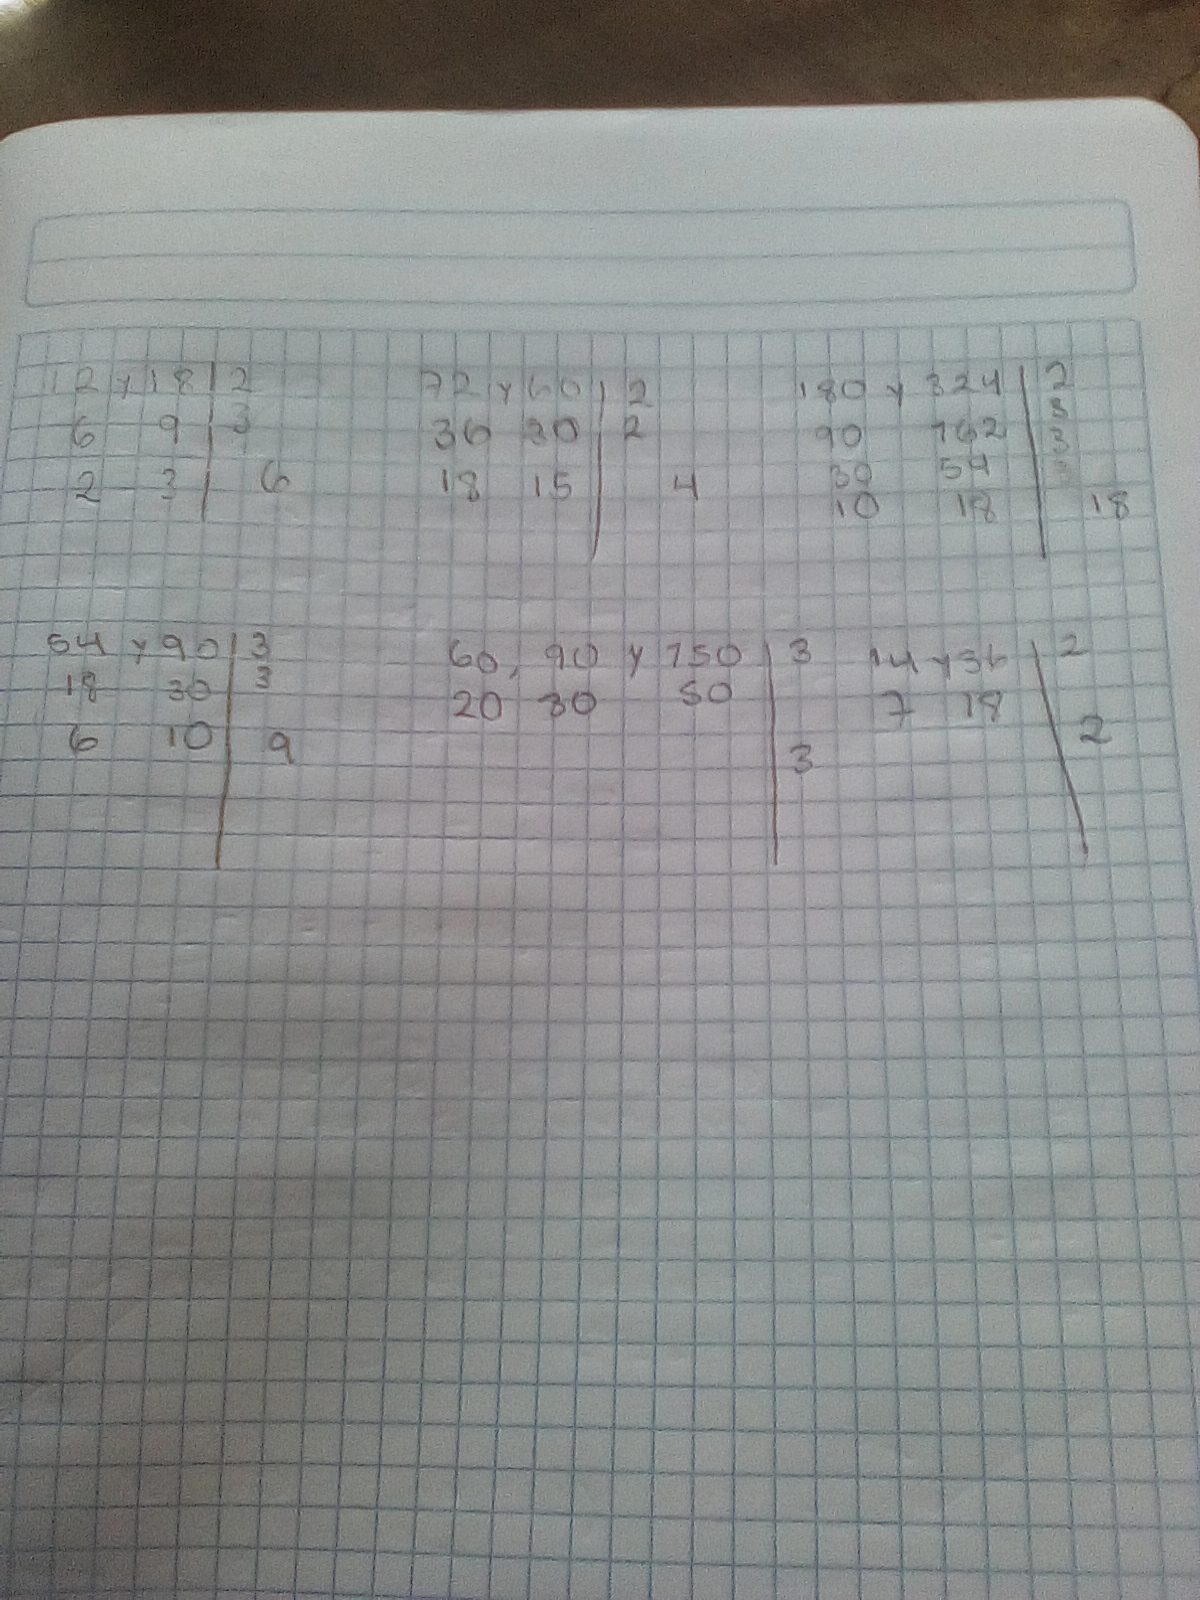 12 y 18 | 2
6 9 | 3
2 3 | 6
72 y 60 | 2
36 30 | 2
18 15 | 4
180 y 324 | 2
90 162 | 3
30 54 | 3
10 18 | 18
54 y 90 | 3
18 30 | 3
6 10 | 9
60, 90 y 150 | 3
20 30 50
3
14 y 36 | 2
7 18
2